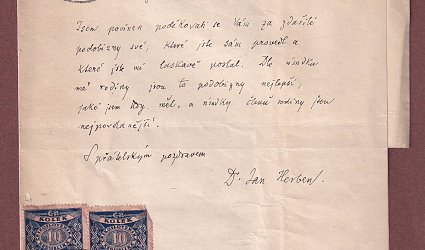 Jsem povinen poděkovati se Vám za zdařilé
podobizny své, které jste sám provedl a
které jste mi laskavě poslal. Dle úsudku
mé rodiny jsou to podobizny nejlepší,
jaké jsem kdy měl, a úsudky členů rodiny jsou
nejpovolanější.
S přátelským pozdravem
Dr. Jan Herben.
KOLEK KOLEK
10 10